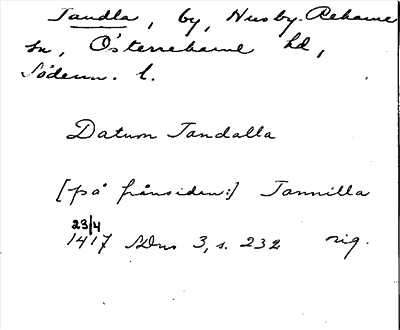 Tandla, by, Husby-Rekarne
sn, Österrekarne hd,
Söderm. l.
Datum Tandalla
[på frånsidan:] Tannilla
23/4
1417 SDns 3, s. 232 orig.